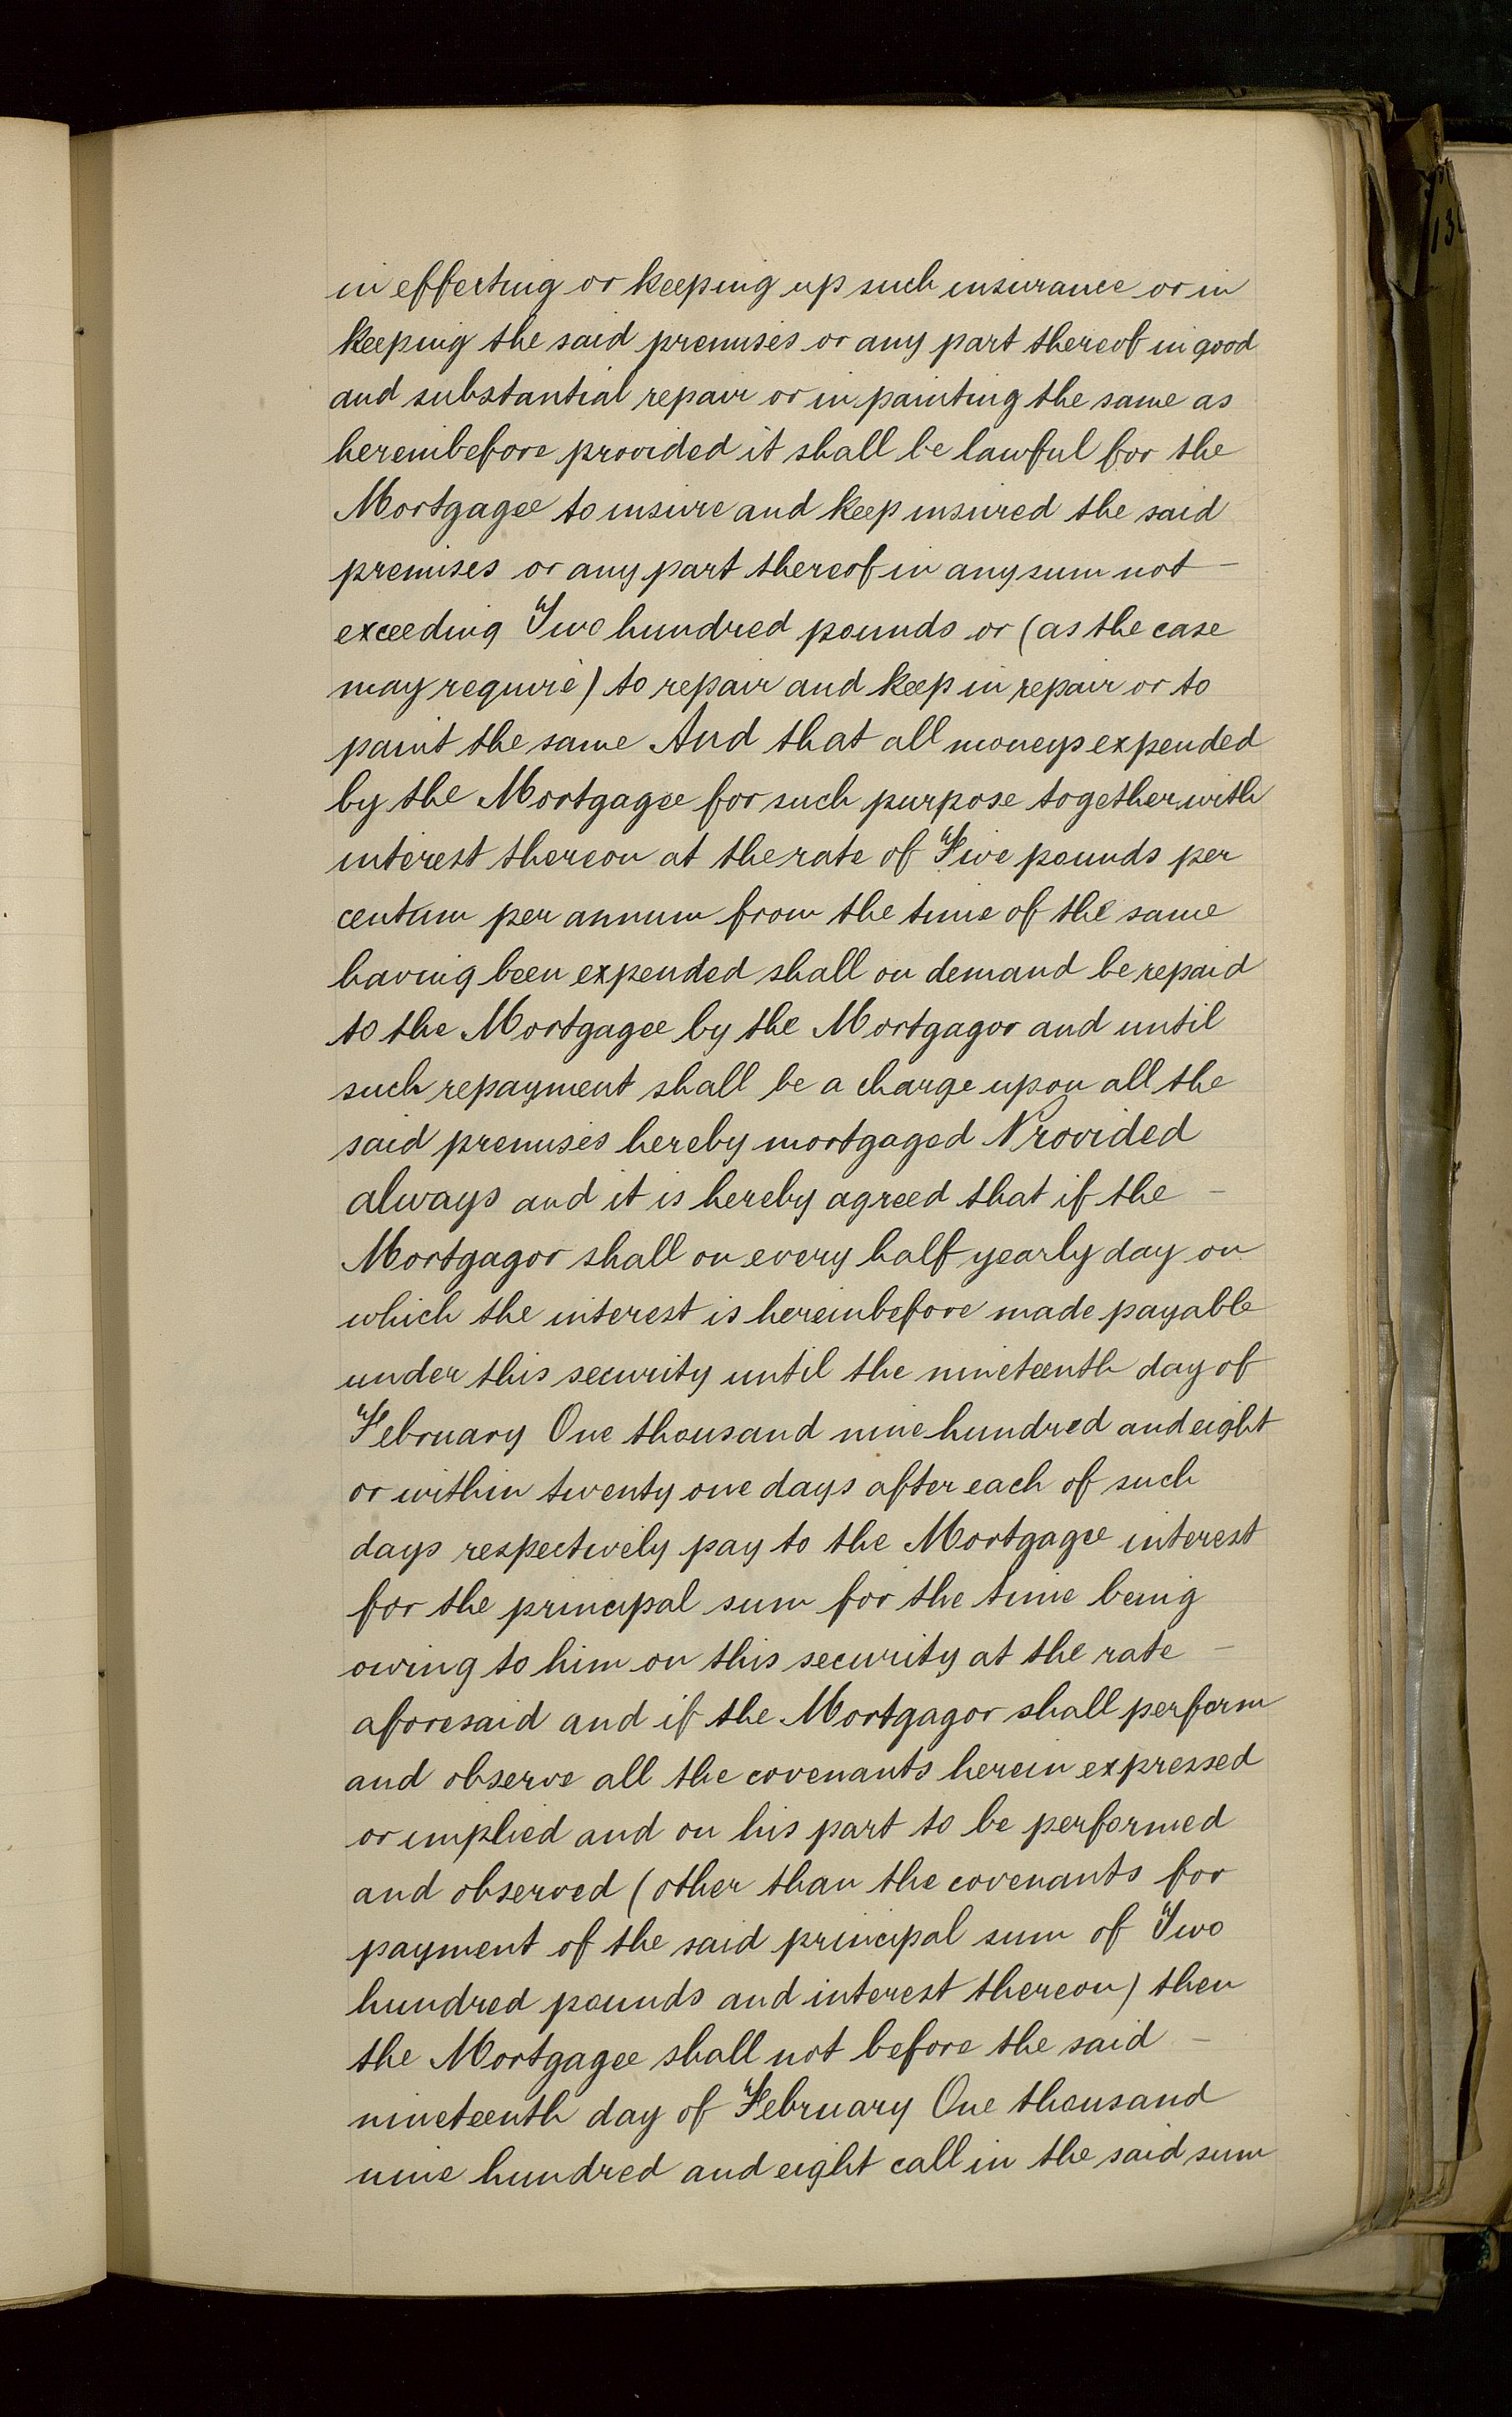 in effecting or keeping up such insurance or in
keeping the said premises or any part thereof in good
and substantial repair or in painting the same as
hereinbefore provided it shall be lawful for the
Mortgagee to insure and keep insured the said
premises or any part thereof in any sum not –
exceeding Two hundred pounds or (as the case
may require) to repair and keep in repair or to
paint the same And that all moneys expended
by the Mortgagee for such purpose together with
interest thereon at the rate of Five pounds per
centum per annum from the time of the same
having been expended shall on demand be repaid
to the Mortgagee by the Mortgagor and until
such repayment shall be a charge upon all the
said premises hereby mortgaged Provided
always and it is hereby agreed that if the –
Mortgagor shall on every half yearly day on
which the interest is hereinbefore made payable
under this security until the nineteenth day of
February One thousand nine hundred and eight
or within twenty one days after each of such
days respectively pay to the Mortgagee interest
for the principal sum for the time being
owing to him on this security at the rate –
aforesaid and if the Mortgagor shall perform
and observe all the covenants herein expressed
or implied and on his part to be performed
and observed (other than the covenants for
payment of the said principal sum of Two
hundred pounds and interest thereon) then
the Mortgagee shall not before the said –
nineteenth day of February One thousand
nine hundred and eight call in the said sum